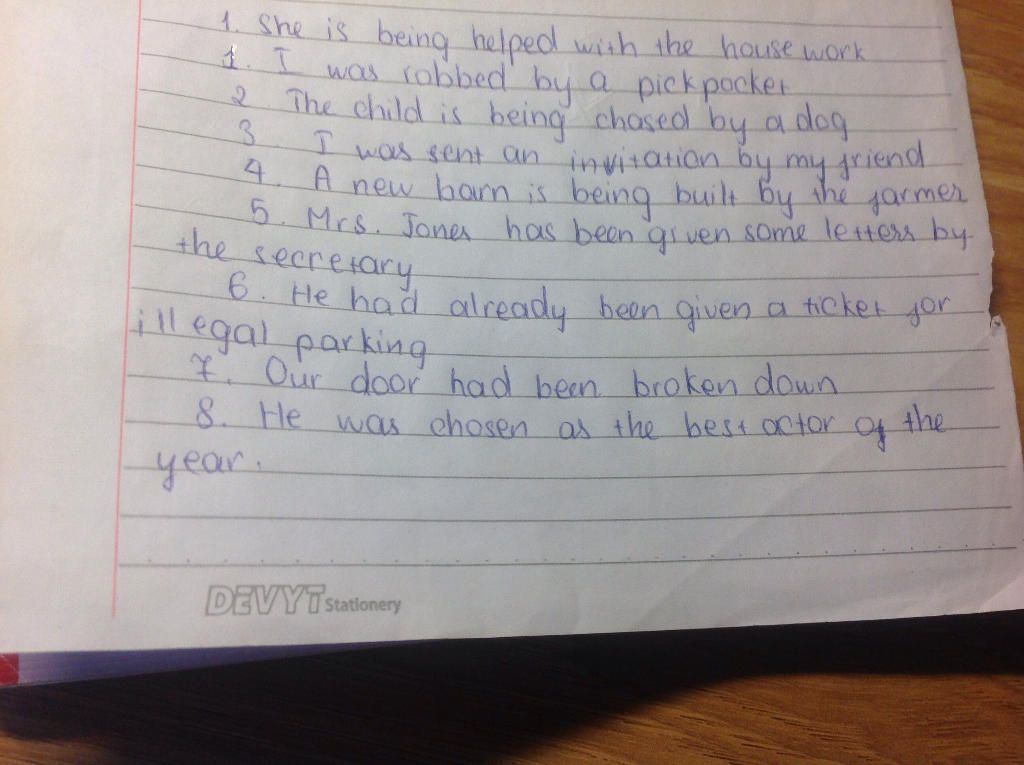 1. She is being helped with the house work
1. I was robbed by a pickpocket
2 The child is being chased by a dog
3 I was sent an invitation by my friend
4. A new barn is being built by the farmer
5. Mrs. Jones has been given some letters by
the secretary
6. He had already been given a ticket for
illegal parking
7. Our door had been broken down
8. He was chosen as the best actor of the
year.
DEVYT Stationery